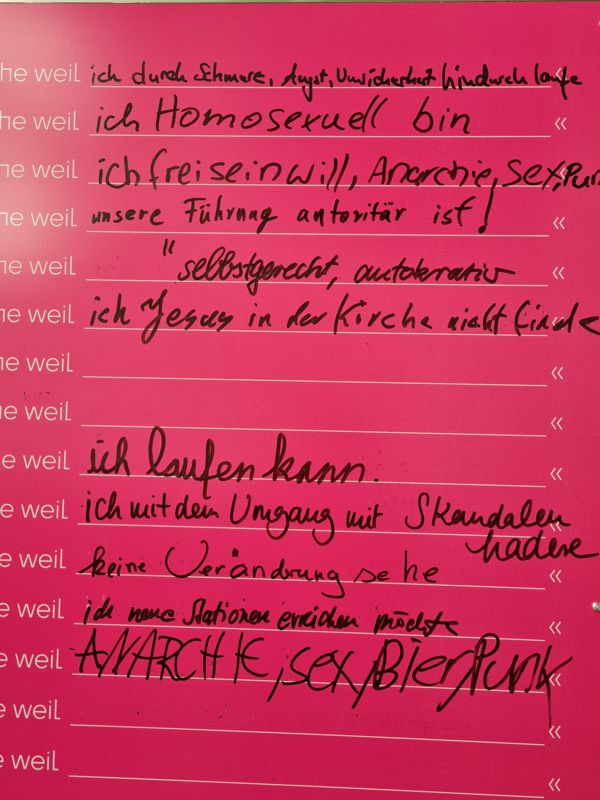 he weil ich durch Schmerz, Angst, Unsicherheit hindurch laufe «
he weil ich Homosexuell bin «
he weil ich frei sein will, Anarchie, Sex, Pun
ne weil unsere Führung autoritär ist! «
ne weil " selbstgerecht, autokrativ «
ne weil ich Jesus in der Kirche nicht finde
ne weil «
ne weil «
e weil ich laufen kann. «
e weil ich mit dem Umgang mit Skandalen hadere «
e weil keine Verändrung sehe «
e weil ich neue Stationen erreichen möchte «
e weil ANARCHIE, SEX, Bier, Punk «
e weil «
e weil «